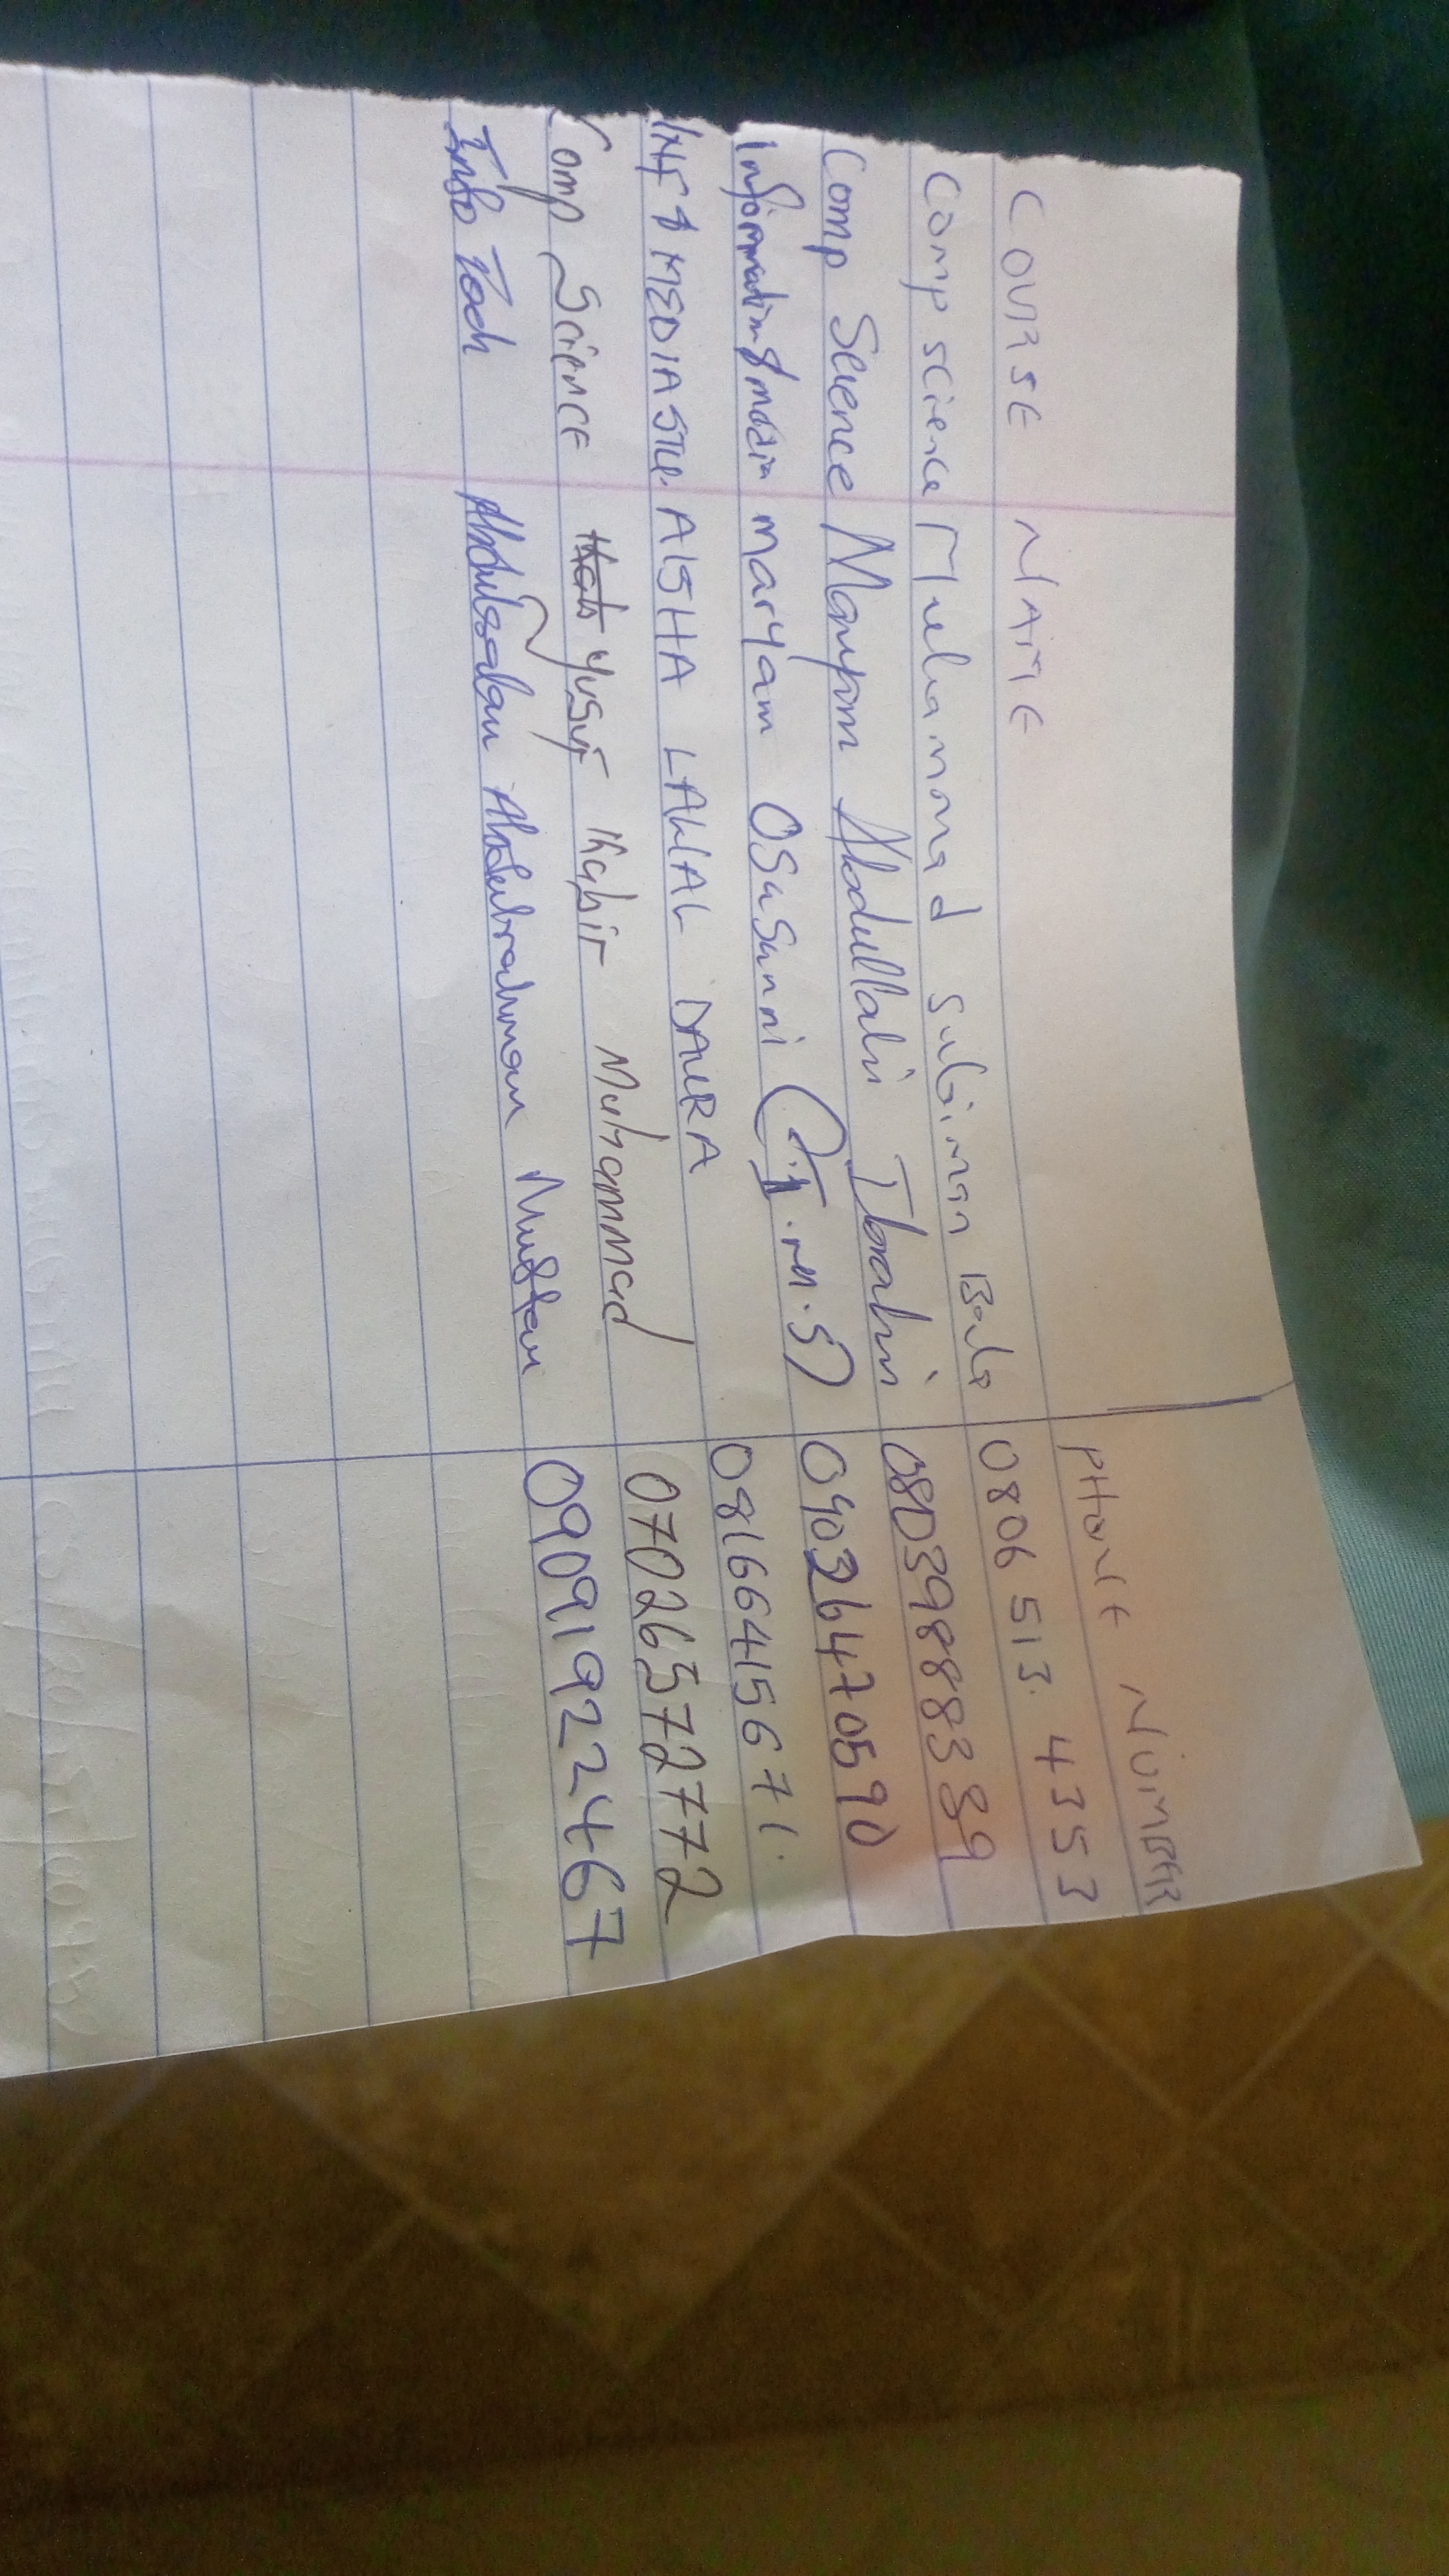 COURSE NAME PHONE NUMBER
Comp science Muhammad Suliman Bala 0806 513 4353
Comp Science Maryam Abdullahi Ibrahim 08039888389
Information & media maryam Osusanni (I.M.S) 090326470590
INF & MEDIA STU. AISHA LAWAL DAURA 08166415671.
Comp Science Yusuf Kabir Muhammad 07026572772
Info Tech Abdulsalam Abdulrahman 09091922467